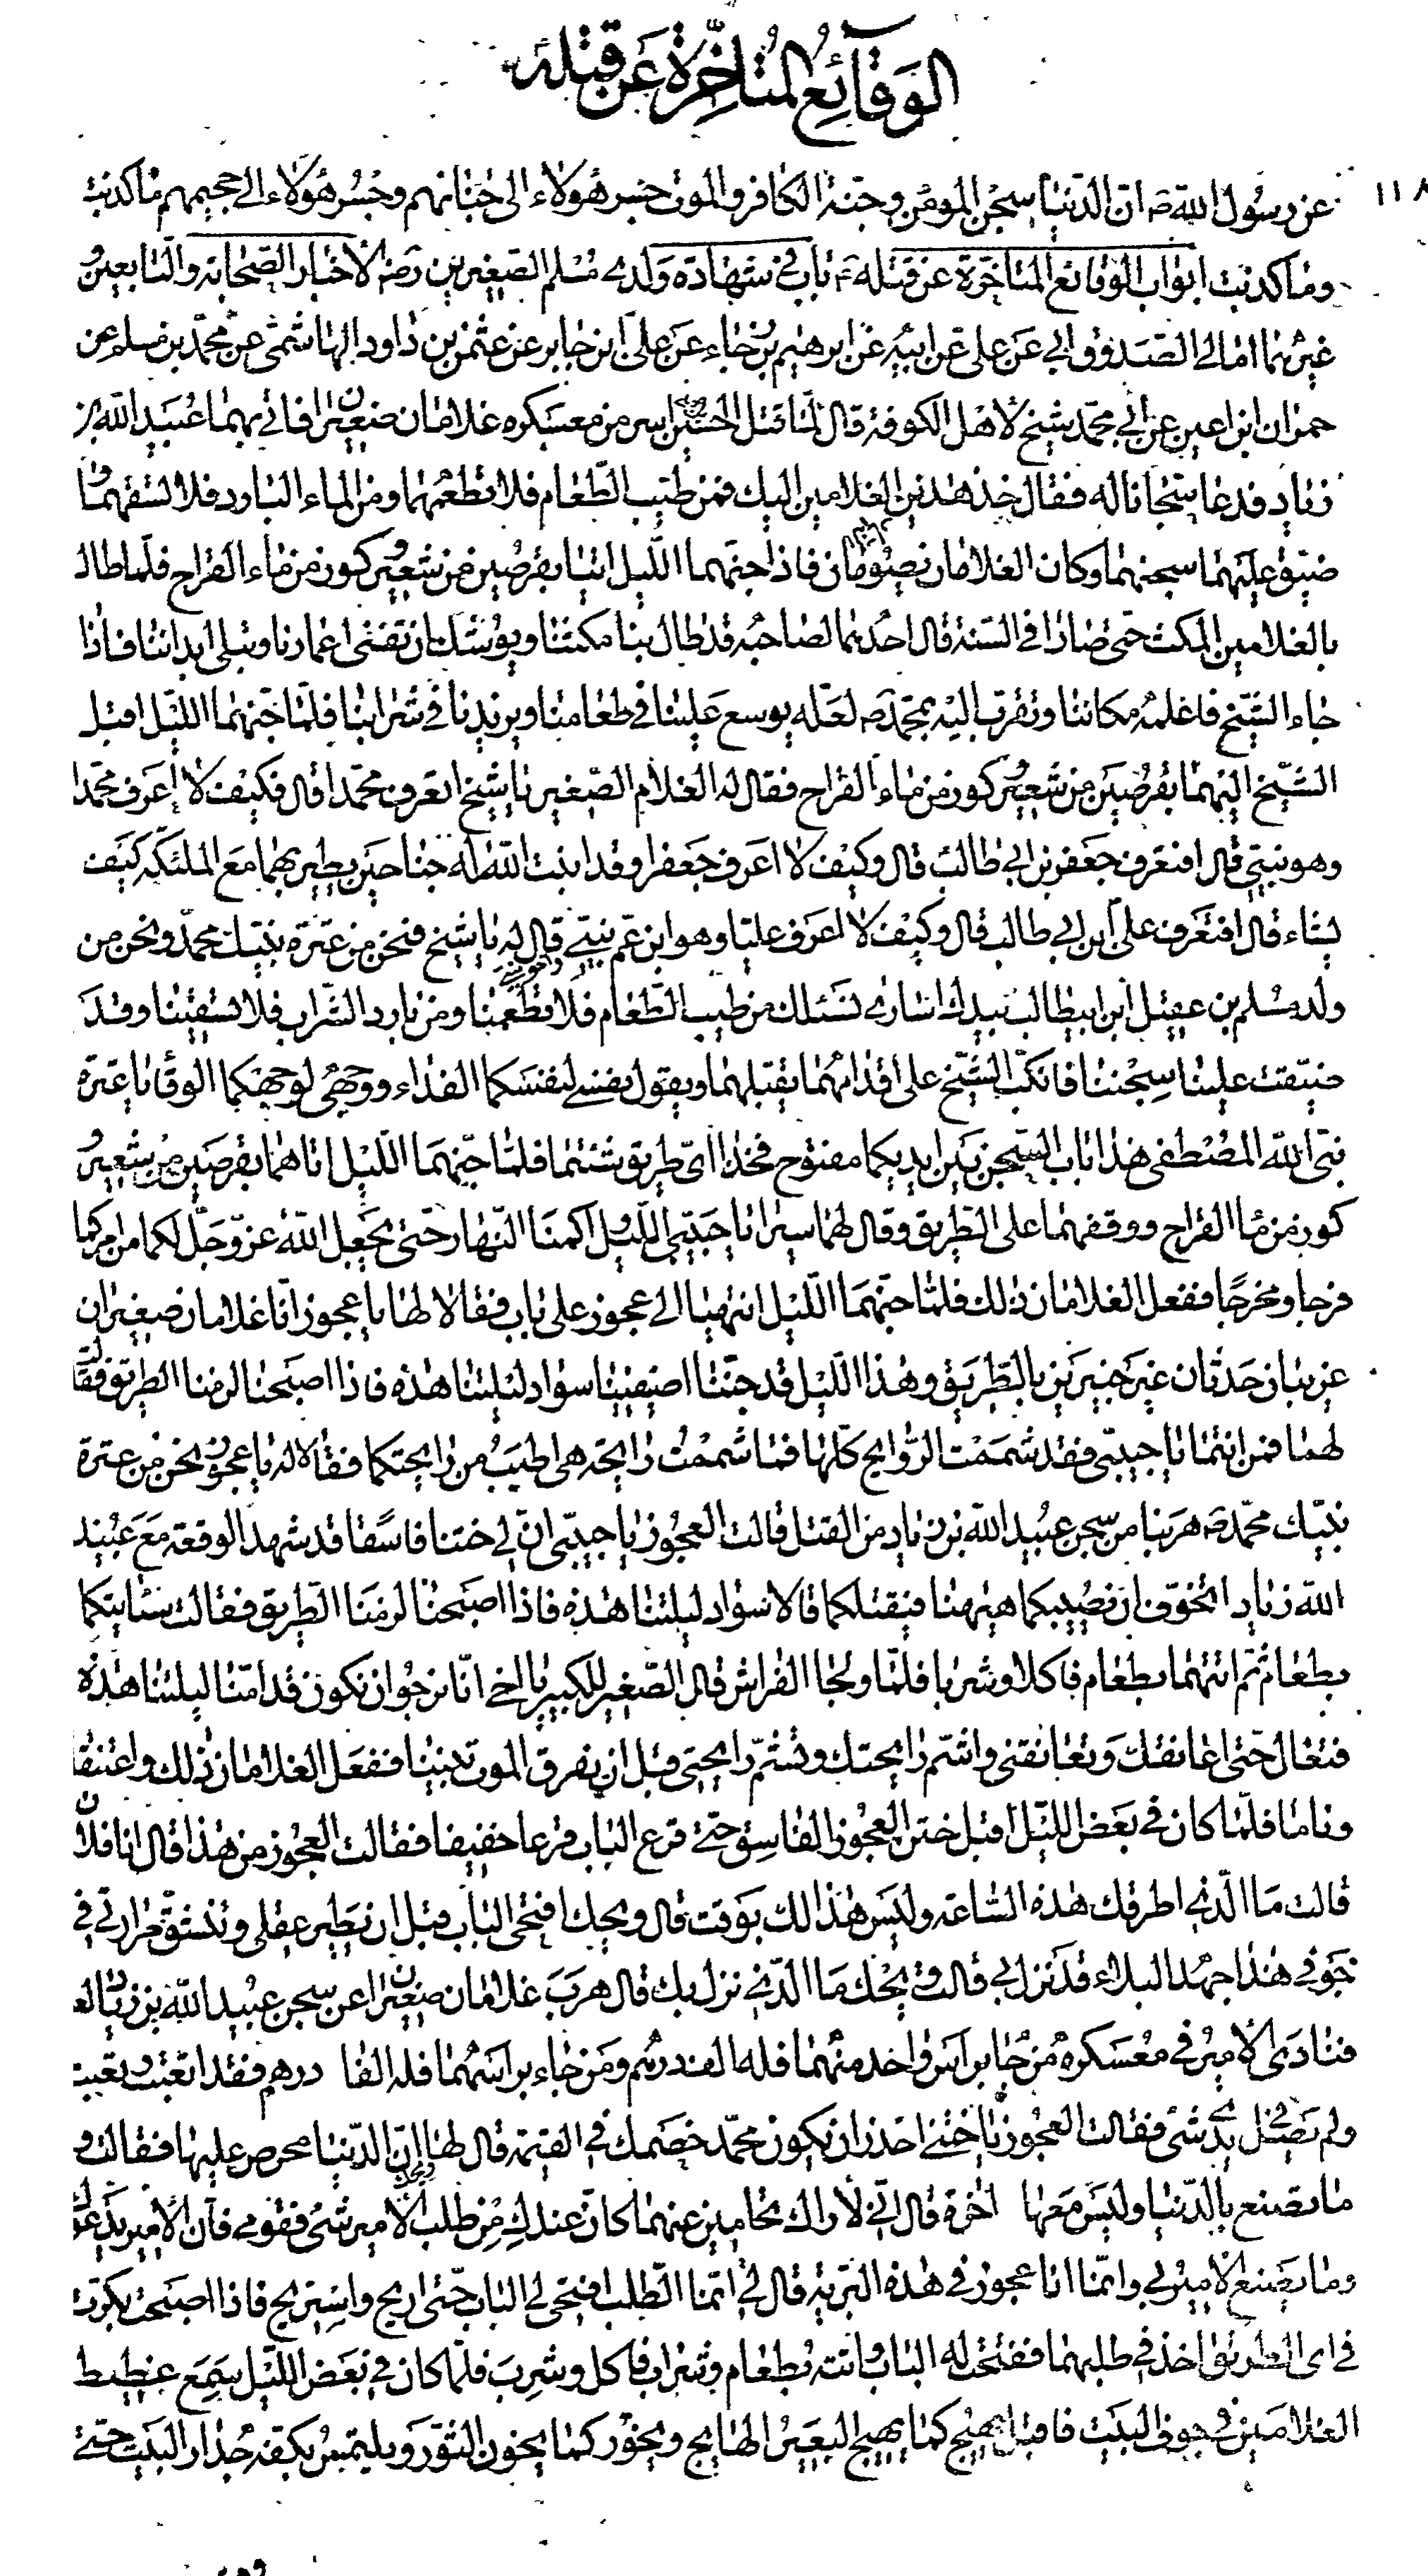 الوقائع المتأخرة عن قتله
١١٨
عن رسول الله ص ان الدنيا سجن المؤمن وجنة الكافر والموت جسر هؤلاء الى جنانهم وجسر هؤلاء الى جحيمهم ما كذبت
وما كذبت ابواب الوقائع المتاخرة عن قتله ع باب في شهادة ولدى مسلم الصغيرين رضه الاخبار الصحابة والتابعين و
غيرهما امالى الصدوق ابي عن على عن ابيه عن ابرهيم بن رجاء عن على ابن جابر عن عثمن بن داود الهاشمى عن محمد بن مسلم عن
حمران ابن اعين عن ابي محمد شيخ لاهل الكوفة قال لما قتل الحسين اسر من معسكره غلامان صغيران فاتي بهما عبيد الله بن
زياد فدعا سجانا له فقال خذ هذين الغلامين اليك فمن طيب الطعام فلا تطعمهما ومن الماء البارد فلا تسقهما و
ضيق عليهما سجنهما وكان الغلامان يصومان فاذا جنهما الليل اتيا بقرصين من شعير و كوز من ماء القراح فلما طال
بالغلامين المكث حتى صارا في السنة قال احدهما لصاحبه قد طال بنا مكثنا ويوشك ان تفنى اعمارنا وتبلى ابداننا فاذا
جاء الشيخ فاعلمه مكاننا وتقرب اليه بمحمد ص لعله يوسع علينا في طعامنا ويزيدنا في شرابنا فلما جنهما الليل اقبل
الشيخ اليهما بقرصين من شعير و كوز من ماء القراح فقال له الغلام الصغير يا شيخ اتعرف محمدا قال فكيف لا اعرف محمدا
وهو نبيي قال افتعرف جعفر بن ابي طالب قال وكيف لا اعرف جعفرا وقد انبت الله له جناحين يطير بهما مع الملئكة كيف
يشاء قال افتعرف على ابن ابي طالب قال وكيف لا اعرف عليا وهو ابن عم نبيي واخو نبيي قال له يا شيخ فنحن من عترة نبيك محمد ونحن من
ولد مسلم بن عقيل ابن ابيطالب بيدك اسارى نسئلك من طيب الطعام فلا تطعمنا ومن بارد الشراب فلا تسقينا وقد
ضيقت علينا سجننا فانكب الشيخ على اقدامهما يقبلهما ويقول نفسى لنفسكما الفداء ووجهى لوجهكما الوقا يا عترة
نبى الله المصطفى هذا باب السجن بين ايديكما مفتوح فخذا اى طريق شئتما فلما جنهما الليل اتاهما بقرصين من شعير و
كوز من ماء القراح ووقفهما على الطريق وقال لهما سيرا يا حبيبى الليل و اكمنا النهار حتى يجعل الله عز وجل لكما من امركما
فرجا ومخرجا ففعل الغلامان ذلك فلما جنهما الليل انتهيا الى عجوز على باب فقالا لها يا عجوز انا غلامان صغيران
غريبان حدثان غير خبيرين بالطريق وهذا الليل قد جننا اضيفينا سواد ليلتنا هذه فاذا اصبحنا لزمنا الطريق فقالت
لهما فمن انتما يا حبيبى فقد شممت الروايح كلها فما شممت رايحة هى اطيب من رايحتكما فقالا لها يا عجوز نحن من عترة
نبيك محمد ص هربنا من سجن عبيد الله بن زياد من القتل قالت العجوز يا حبيبى ان لى ختنا فاسقا قد شهد الوقعة مع عبيد
الله زياد اتخوف ان يصيبكما هيهنا فيقتلكما قالا سواد ليلتنا هذه فاذا اصبحنا لزمنا الطريق فقالت ساتيكما
بطعام ثم اتتهما بطعام فاكلا وشربا فلما ولجا الفراش قال الصغير للكبير يا اخى انا نرجو ان نكون قد امنا ليلتنا هذه
فتعال حتى اعانقك وتعانقنى واشم رايحتك وتشم رايحتى قبل ان يفرق الموت بيننا ففعل الغلامان ذلك واعتنقا
وناما فلما كان في بعض الليل اقبل ختن العجوز الفاسق حتى قرع الباب قرعا خفيفا فقالت العجوز من هذا قال انا فلان
قالت ما الذى اطرقك هذه الساعة وليس هذا لك بوقت قال ويحك افتحى الباب قبل ان يطير عقلى وتنشق مرارتى في
جوفى هذا جهد البلاء قد نزل بي قالت ويحك ما الذى نزل بك قال هرب غلامان صغيران عن سجن عبيد الله بن زياد
فنادى الامير في معسكره من جا براس واحد منهما فله الف درهم ومن جاء براسهما فله الفا درهم فقد اتعبت وتعبت
ولم يصل في يدى شئ فقالت العجوز يا ختنى احذر ان يكون محمد خصمك في القيمة قال لها ان الدنيا محرص عليها فقالت و
ما تصنع بالدنيا وليس معها اخرة قال انى لاراك تحامين عنهما كان عندك من طلب الامير شئ فقومى فان الامير يدعوك
وما يصنع الامير بي وانما انا عجوز في هذه البرية قال لى انما الطلب افتحى لى الباب حتى اريح واستريح فاذا اصبحت بكرت
في اى الطريق اخذ في طلبهما ففتحت له الباب واتته بطعام وشراب فاكل وشرب فلما كان في بعض الليل سمع غطيط
الغلامين في جوف البيت فاقبل يهيج كما يهيج البعير الهايج ويخور كما يخور الثور ويلتمس بكفه جدار البيت حتى